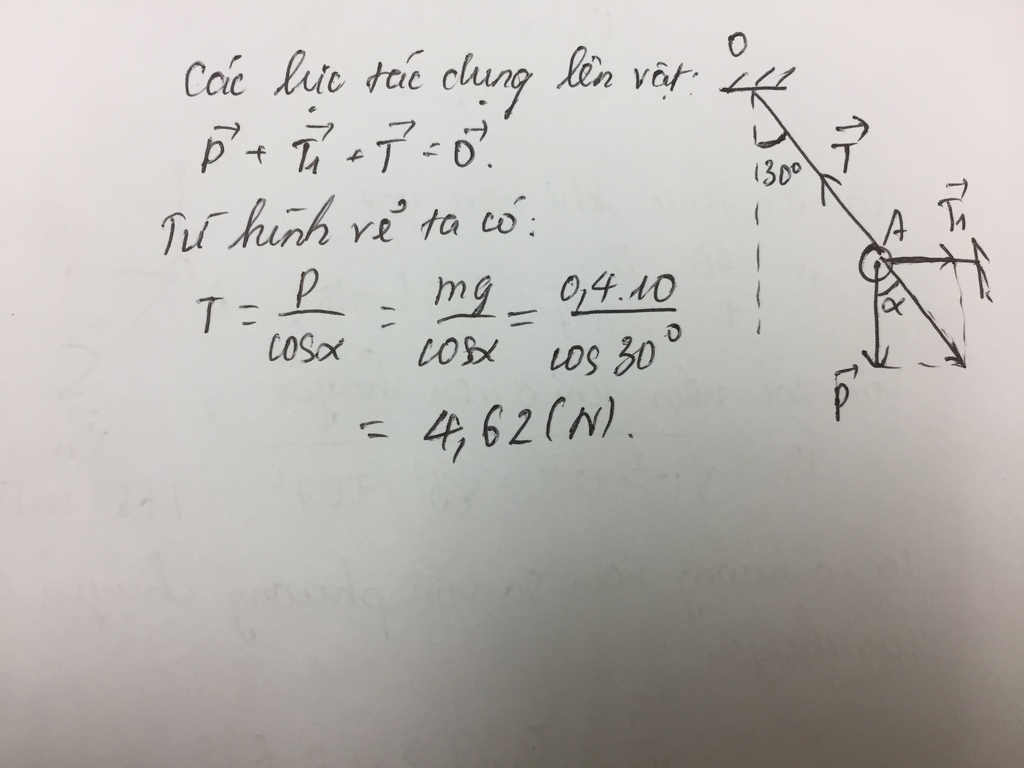 Các lực tác dụng lên vật:
P⃗ + T⃗₁ + T⃗ = 0⃗.
Từ hình vẽ ta có:
T = P/cosα = mg/cosα = 0,4.10/cos 30°
= 4,62 (N).
O
30°
T⃗
A
T⃗₁
α
P⃗